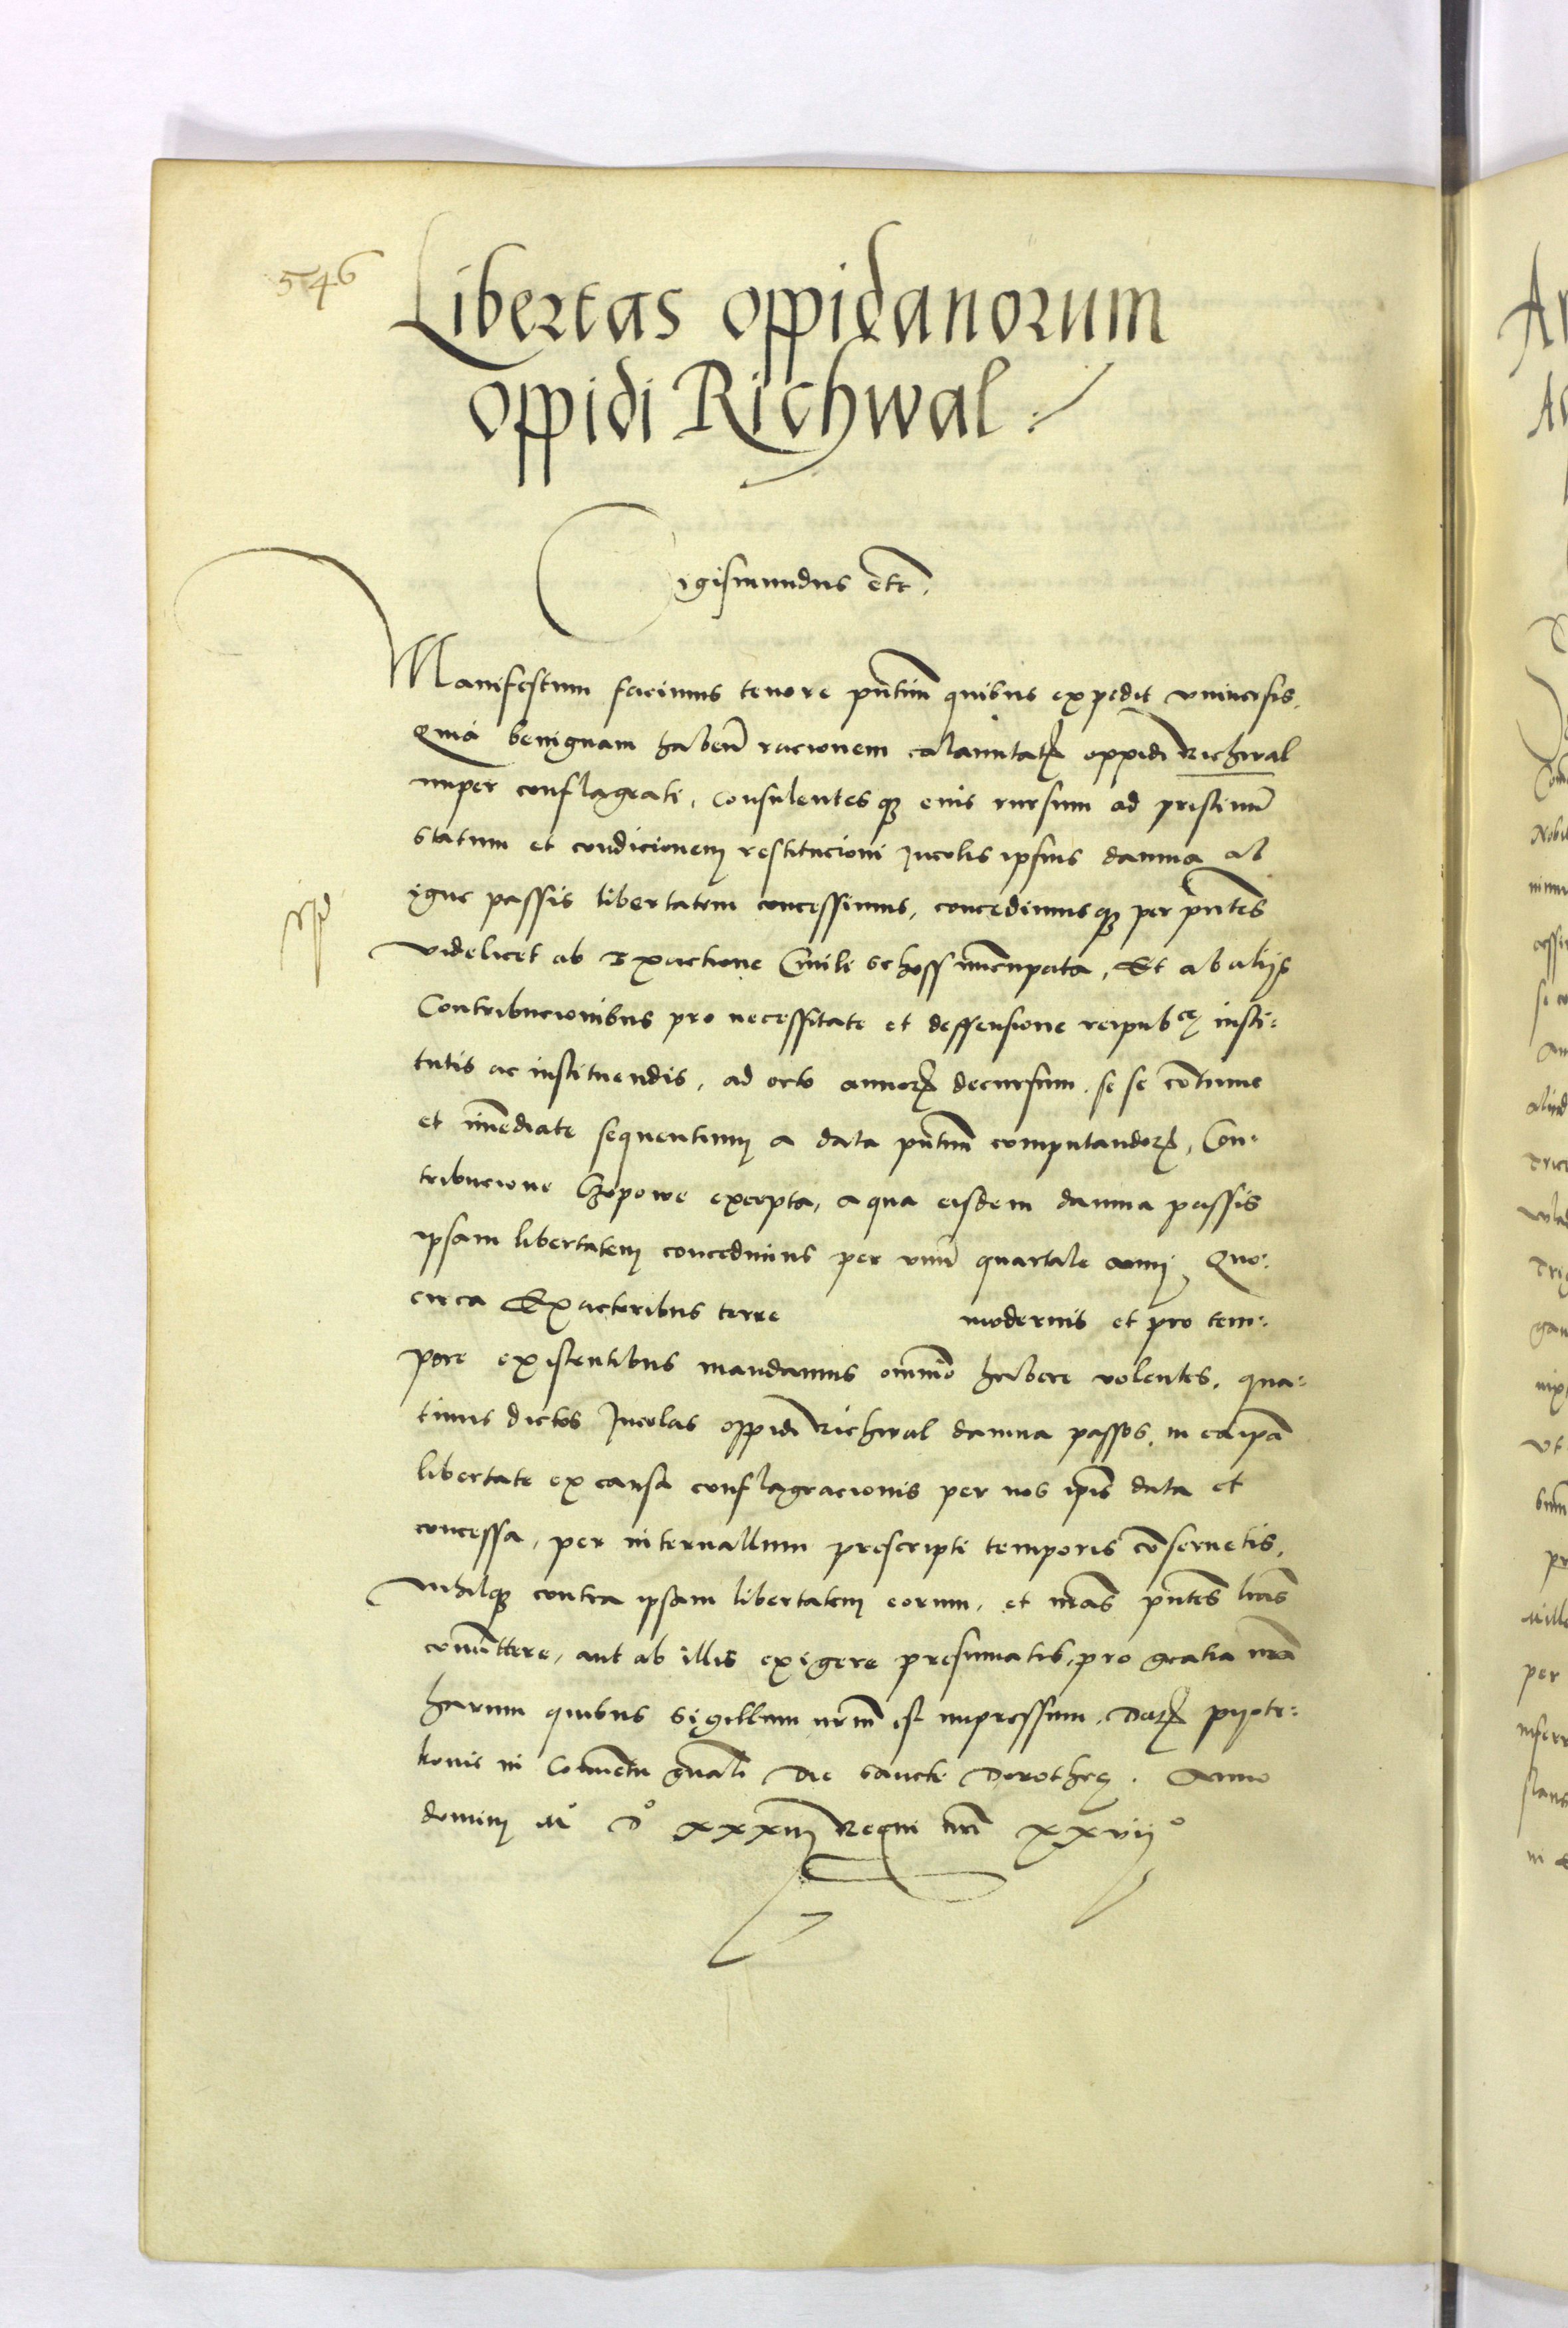 546
Libertas oppidanorum
oppidi Richwal
Sigismundus etc.
Manifestum facimus tenore pntim quibus expedit universis.
Quia benignam haben racionem calamitat oppidi Richwal
nuper conflagrati, Consulentes q eius rursum ad pristinu
statum et condicionem restitucioni Incolis ipsius damna ab
igne passis libertatem concessimus, concedimus q per pntes
videlicet ab Exactione Civili schoss nuncupata, Et ab aliis
Contribucionibus pro necessitate et deffensione reipub insti:
tutis ac instituendis, ad octo annor decursum se se continue
et imediate sequentium a data pntium computandor, Con:
tribucione Czopowe excepta, a qua eisdem damna passis
ipsam libertatem concedimus per unu quartale anni, Quo:
circa Exactoribus terre modernis et pro tem:
pore existentibus mandamus omnino habere volentes, qua:
tinus dictos Incolas oppidi Richwal damna passos, in ea ipa
libertate ex causa conflagracionis per nos ipis data et
concessa, per intervallum prescripti temporis conservetis,
nihilq contra ipsam libertatem eorum, et nras pntes lras
comittere, aut ab illis exigere presumatis, pro gratia nra
harum quibus sigillum nrm est impressum. Dat pyotr:
kovie in Conventu gnali die sancte Dorothee. Anno
domini Mo Do xxxiii Regni nri xxvii o